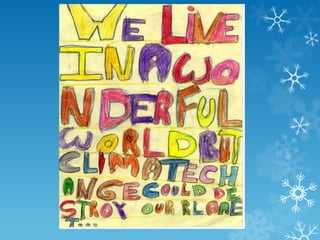 WE LIVE
IN A WO
NDERFUL
WORLD BUT
CLIMATE CH
ANGE COULD DE
STROY OUR PLANE
T....